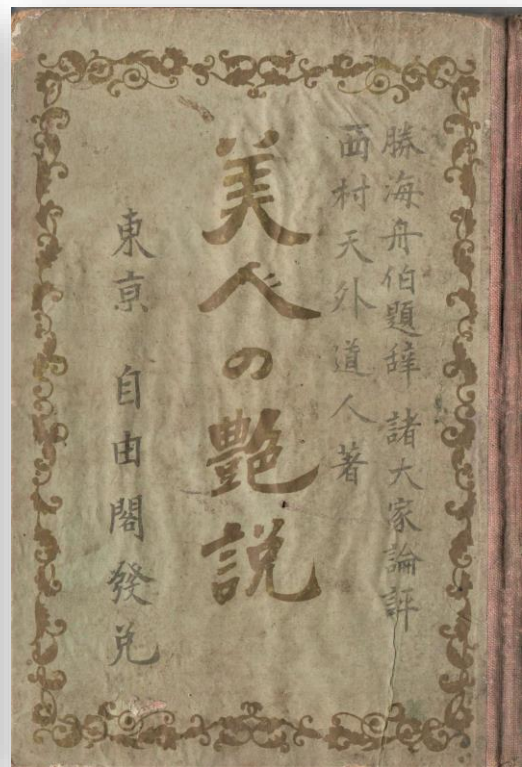 勝海舟伯題辞 諸大家論評
西村天外道人著
美人の艶説
東亰 自由閣發兌